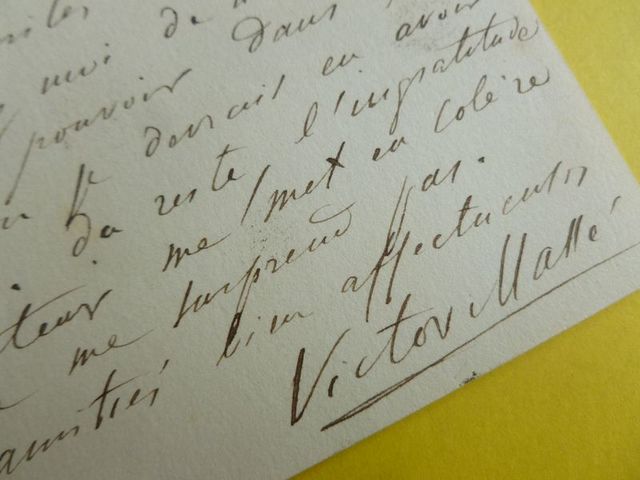 moi de
pouvoir dans
je devrais en avoir
du reste l'ingratitude
me met en colère
me surprend pas.
amitiés bien affectueuses
Victor Massé